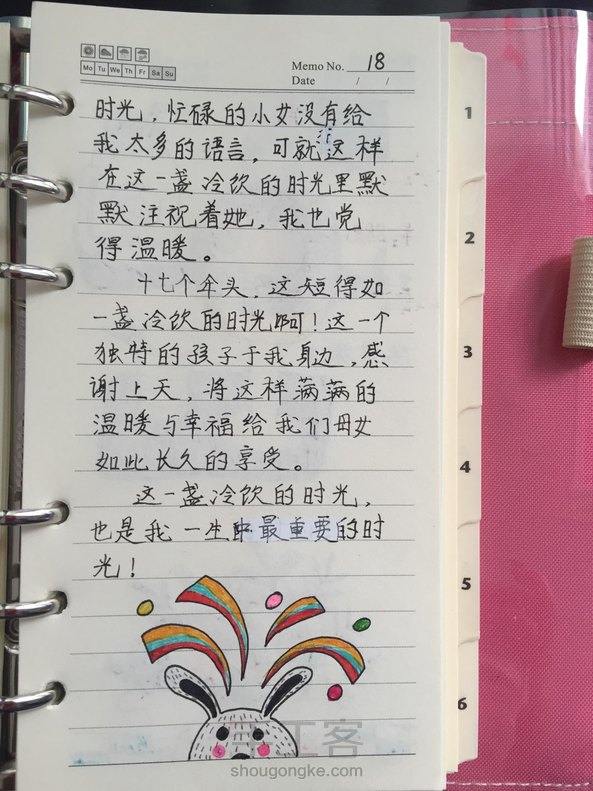 Mo Tu We Th Fr Sa Su
Memo No. 18
Date / /
时光，忙碌的小女没有给
我太多的语言，可就这样
在这一盏冷饮的时光里默
默注视着她，我也觉
得温暖。
十七个年头，这短得如
一盏冷饮的时光啊！这一个
独特的孩子于我身边，感
谢上天，将这样满满的
温暖与幸福给我们母女
如此长久的享受。
这一盏冷饮的时光，
也是我一生中最重要的时
光！
1
2
3
4
5
6
手工客
shougongke.com